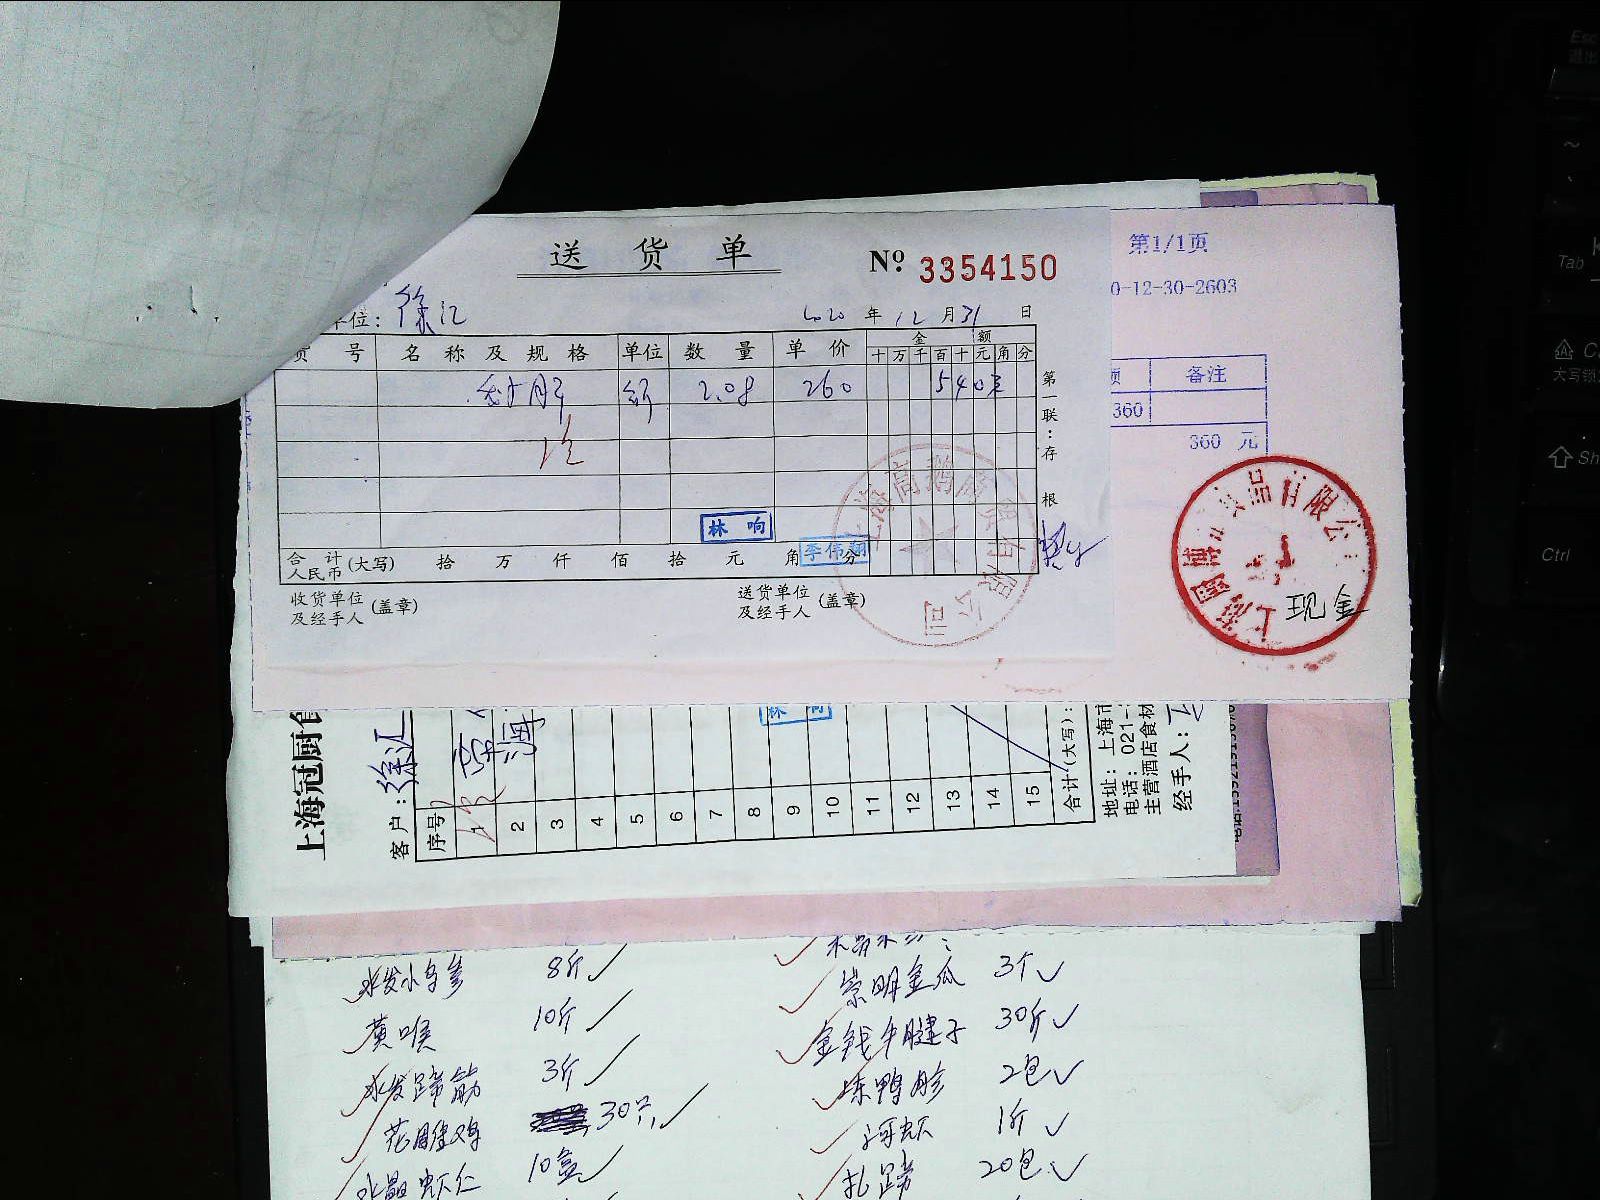 送货单 № 3354150
单位: 徐汇 2020 年 12 月 31 日
货号 名称及规格 单位 数量 单价 金额
十万千百十元角分
斤 2.08 260 540
林响
李伟翔
合计人民币(大写) 拾 万 仟 佰 拾 元 角 分
收货单位及经手人(盖章) 送货单位及经手人(盖章)
第一联:存根
第1/1页
0-12-30-2603
额 备注
360
360 元
食品有限公
现金
上海冠厨食
客户: 徐汇
序号
1
2
3
4
5
6
7
8
9
10
11
12
13
14
15
合计(大写):
地址: 上海市
电话: 021-
主营酒店食材
经手人:
林响
水发小乌参 8斤
黄喉 10斤
水发蹄筋 3斤
花雕鸡 30只
水晶虾仁 10盒
崇明金瓜 3个
金钱牛腱子 30斤
冻鸭胗 2包
河虾 1斤
扎蹄 20包
Esc
退出
~
Tab
大写锁
Sh
Ctrl